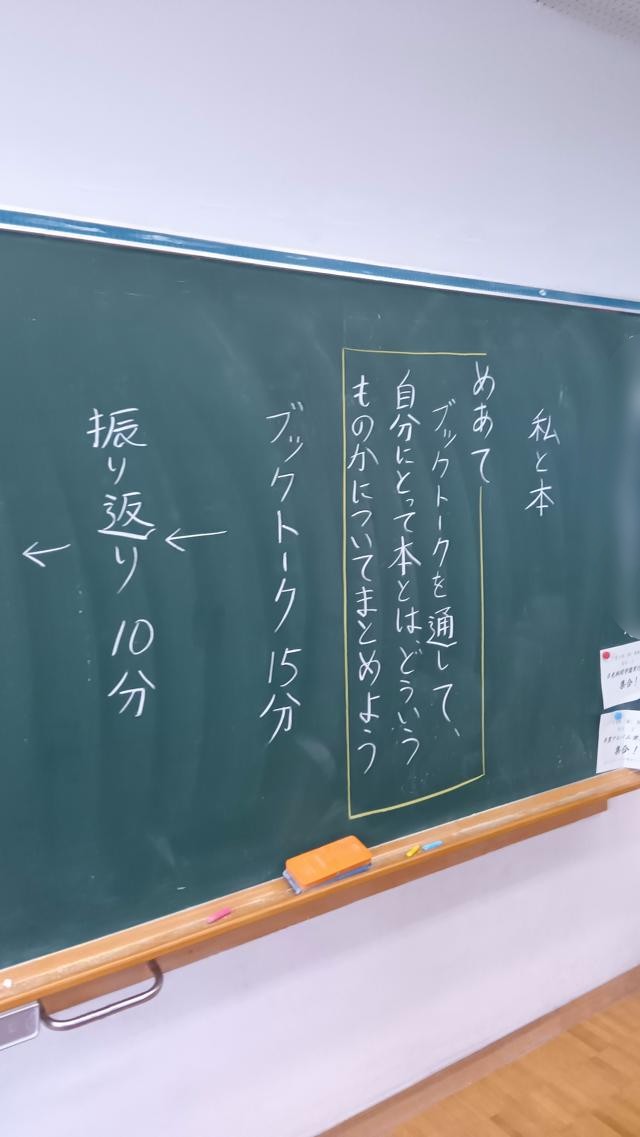 私と本
めあて
ブックトークを通して、
自分にとって本とは、どういう
ものかについてまとめよう
ブックトーク 15分
←
振り返り 10分
←
集合!
集合!